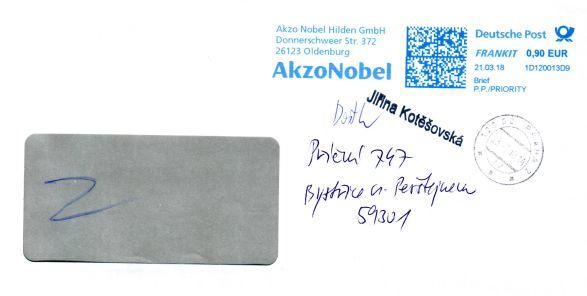 Akzo Nobel Hilden GmbH
Donnerschweer Str. 372
26123 Oldenburg
AkzoNobel
Deutsche Post
FRANKIT 0,90 EUR
21.03.18 1D120013D9
Brief
P.P./PRIORITY
Jiřina Kotěšovská
Příční 747
Bystřice n. Pernštejnem
59301